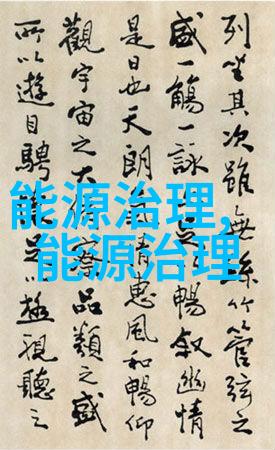 列坐其次雖無絲竹管弦之
盛一觴一詠足暢敘幽情
是日也天朗清惠風和暢仰
觀宇宙之大俯察品類之盛
所以遊目騁足以極視聽之
能源治理,
能源治理